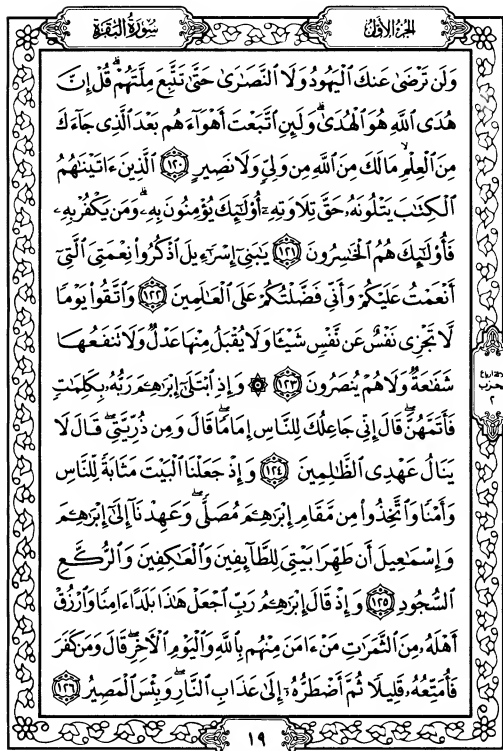 الجزء الأول
سورة البقرة
وَلَن تَرْضَىٰ عَنكَ الْيَهُودُ وَلَا النَّصَارَىٰ حَتَّىٰ تَتَّبِعَ مِلَّتَهُمْ ۗ قُلْ إِنَّ
هُدَى اللَّهِ هُوَ الْهُدَىٰ ۗ وَلَئِنِ اتَّبَعْتَ أَهْوَاءَهُم بَعْدَ الَّذِي جَاءَكَ
مِنَ الْعِلْمِ ۙ مَا لَكَ مِنَ اللَّهِ مِن وَلِيٍّ وَلَا نَصِيرٍ ١٢٠ الَّذِينَ ءَاتَيْنَاهُمُ
الْكِتَابَ يَتْلُونَهُ حَقَّ تِلَاوَتِهِ أُولَٰئِكَ يُؤْمِنُونَ بِهِ ۗ وَمَن يَكْفُرْ بِهِ
فَأُولَٰئِكَ هُمُ الْخَاسِرُونَ ١٢١ يَبَنِي إِسْرَاءِيلَ اذْكُرُوا نِعْمَتِيَ الَّتِي
أَنْعَمْتُ عَلَيْكُمْ وَأَنِّي فَضَّلْتُكُمْ عَلَى الْعَالَمِينَ ١٢٢ وَاتَّقُوا يَوْمًا
لَّا تَجْزِي نَفْسٌ عَن نَّفْسٍ شَيْئًا وَلَا يُقْبَلُ مِنْهَا عَدْلٌ وَلَا تَنفَعُهَا
شَفَاعَةٌ وَلَا هُمْ يُنصَرُونَ ١٢٣ ۞ وَإِذِ ابْتَلَىٰ إِبْرَٰهِـمَ رَبُّهُ بِكَلِمَاتٍ
فَأَتَمَّهُنَّ ۖ قَالَ إِنِّي جَاعِلُكَ لِلنَّاسِ إِمَامًا ۖ قَالَ وَمِن ذُرِّيَّتِي ۖ قَالَ لَا
يَنَالُ عَهْدِي الظَّالِمِينَ ١٢٤ وَإِذْ جَعَلْنَا الْبَيْتَ مَثَابَةً لِّلنَّاسِ
وَأَمْنًا وَاتَّخِذُوا مِن مَّقَامِ إِبْرَٰهِـمَ مُصَلًّى ۖ وَعَهِدْنَا إِلَىٰ إِبْرَٰهِـمَ
وَإِسْمَاعِيلَ أَن طَهِّرَا بَيْتِيَ لِلطَّائِفِينَ وَالْعَاكِفِينَ وَالرُّكَّعِ
السُّجُودِ ١٢٥ وَإِذْ قَالَ إِبْرَٰهِـمُ رَبِّ اجْعَلْ هَٰذَا بَلَدًا ءَامِنًا وَارْزُقْ
أَهْلَهُ مِنَ الثَّمَرَاتِ مَنْ ءَامَنَ مِنْهُم بِاللَّهِ وَالْيَوْمِ الْآخِرِ ۖ قَالَ وَمَن كَفَرَ
فَأُمَتِّعُهُ قَلِيلًا ثُمَّ أَضْطَرُّهُ إِلَىٰ عَذَابِ النَّارِ ۖ وَبِئْسَ الْمَصِيرُ ١٢٦
حزب
٢
١٩